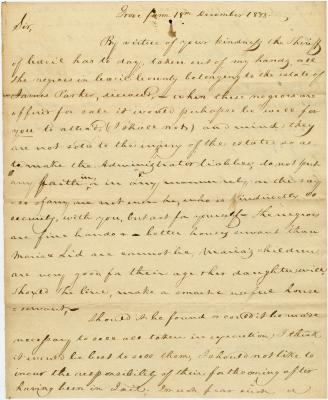 Grove farm 18th December 1833.
Sir,
By virtue of your kindness the Sheriff
of has to day, taken out of my hands, all
the negroes in County belonging to the estate of
James Parker, deceased, — when these negroes are
offered for sale it would perhaps be wise for
you to attend, (I shall not) and mind, they
are not sold to the injury of the estate so as
to make the Administrator liable; do, not put
any faith in, or in any manner rely on the
of any one not even he, who is
security, with you, but act for yourself — the negroes
are fine hands — better house servant than
Maria & Lid are cannot be, Maria's children
are very good for their age & her daughter, will
should she live, make a smart & useful house
servant,—
Should it be found or it be made
necessary to sell all taken in execution, I think
it would be best to sell them, I should not like to
incur the responsibility of their forthcoming after
having been in Jail, I much fear such a